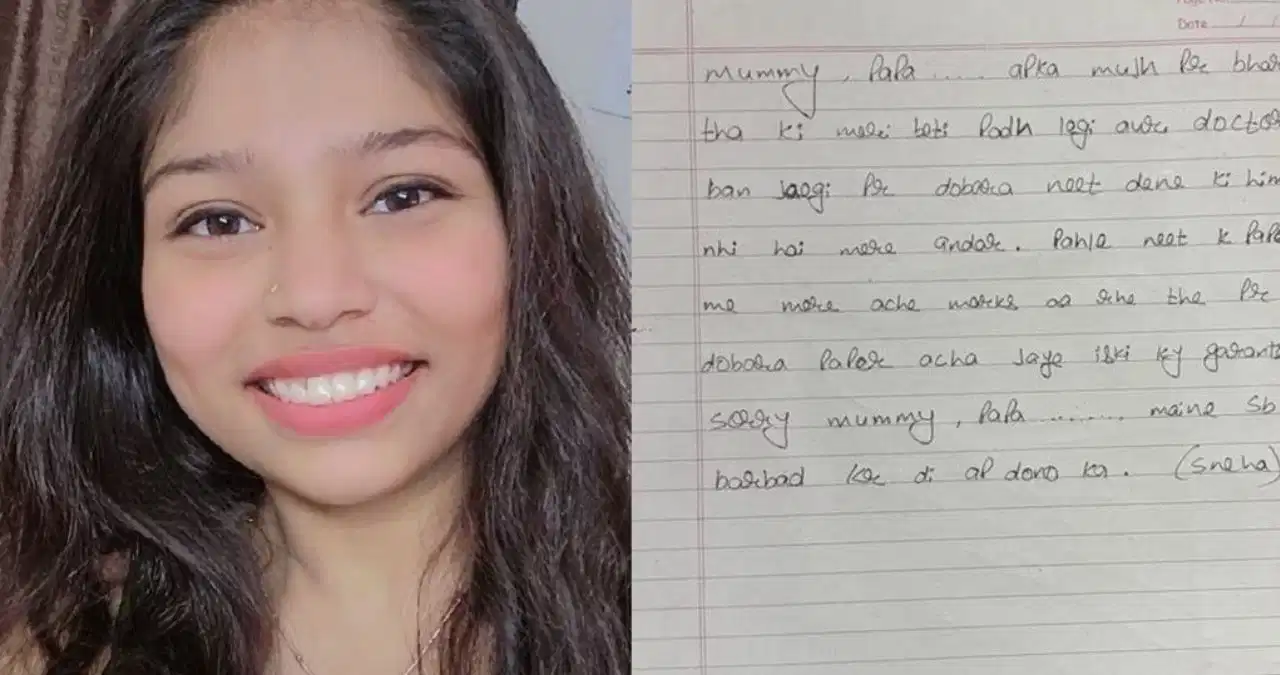 Date / /
mummy, PaPa ..... apka mujh Per
tha ki meri beti Padh legi aur
ban jaegi Per dobara neet dene ki
nhi hai mere andar. Pahle neet k
me mere ache marks aa rhe the Per
dobara PaPer acha jaye iski ky
sorry mummy, PaPa ........ maine sb
barbad kr di ap dono ka. (Sneha)